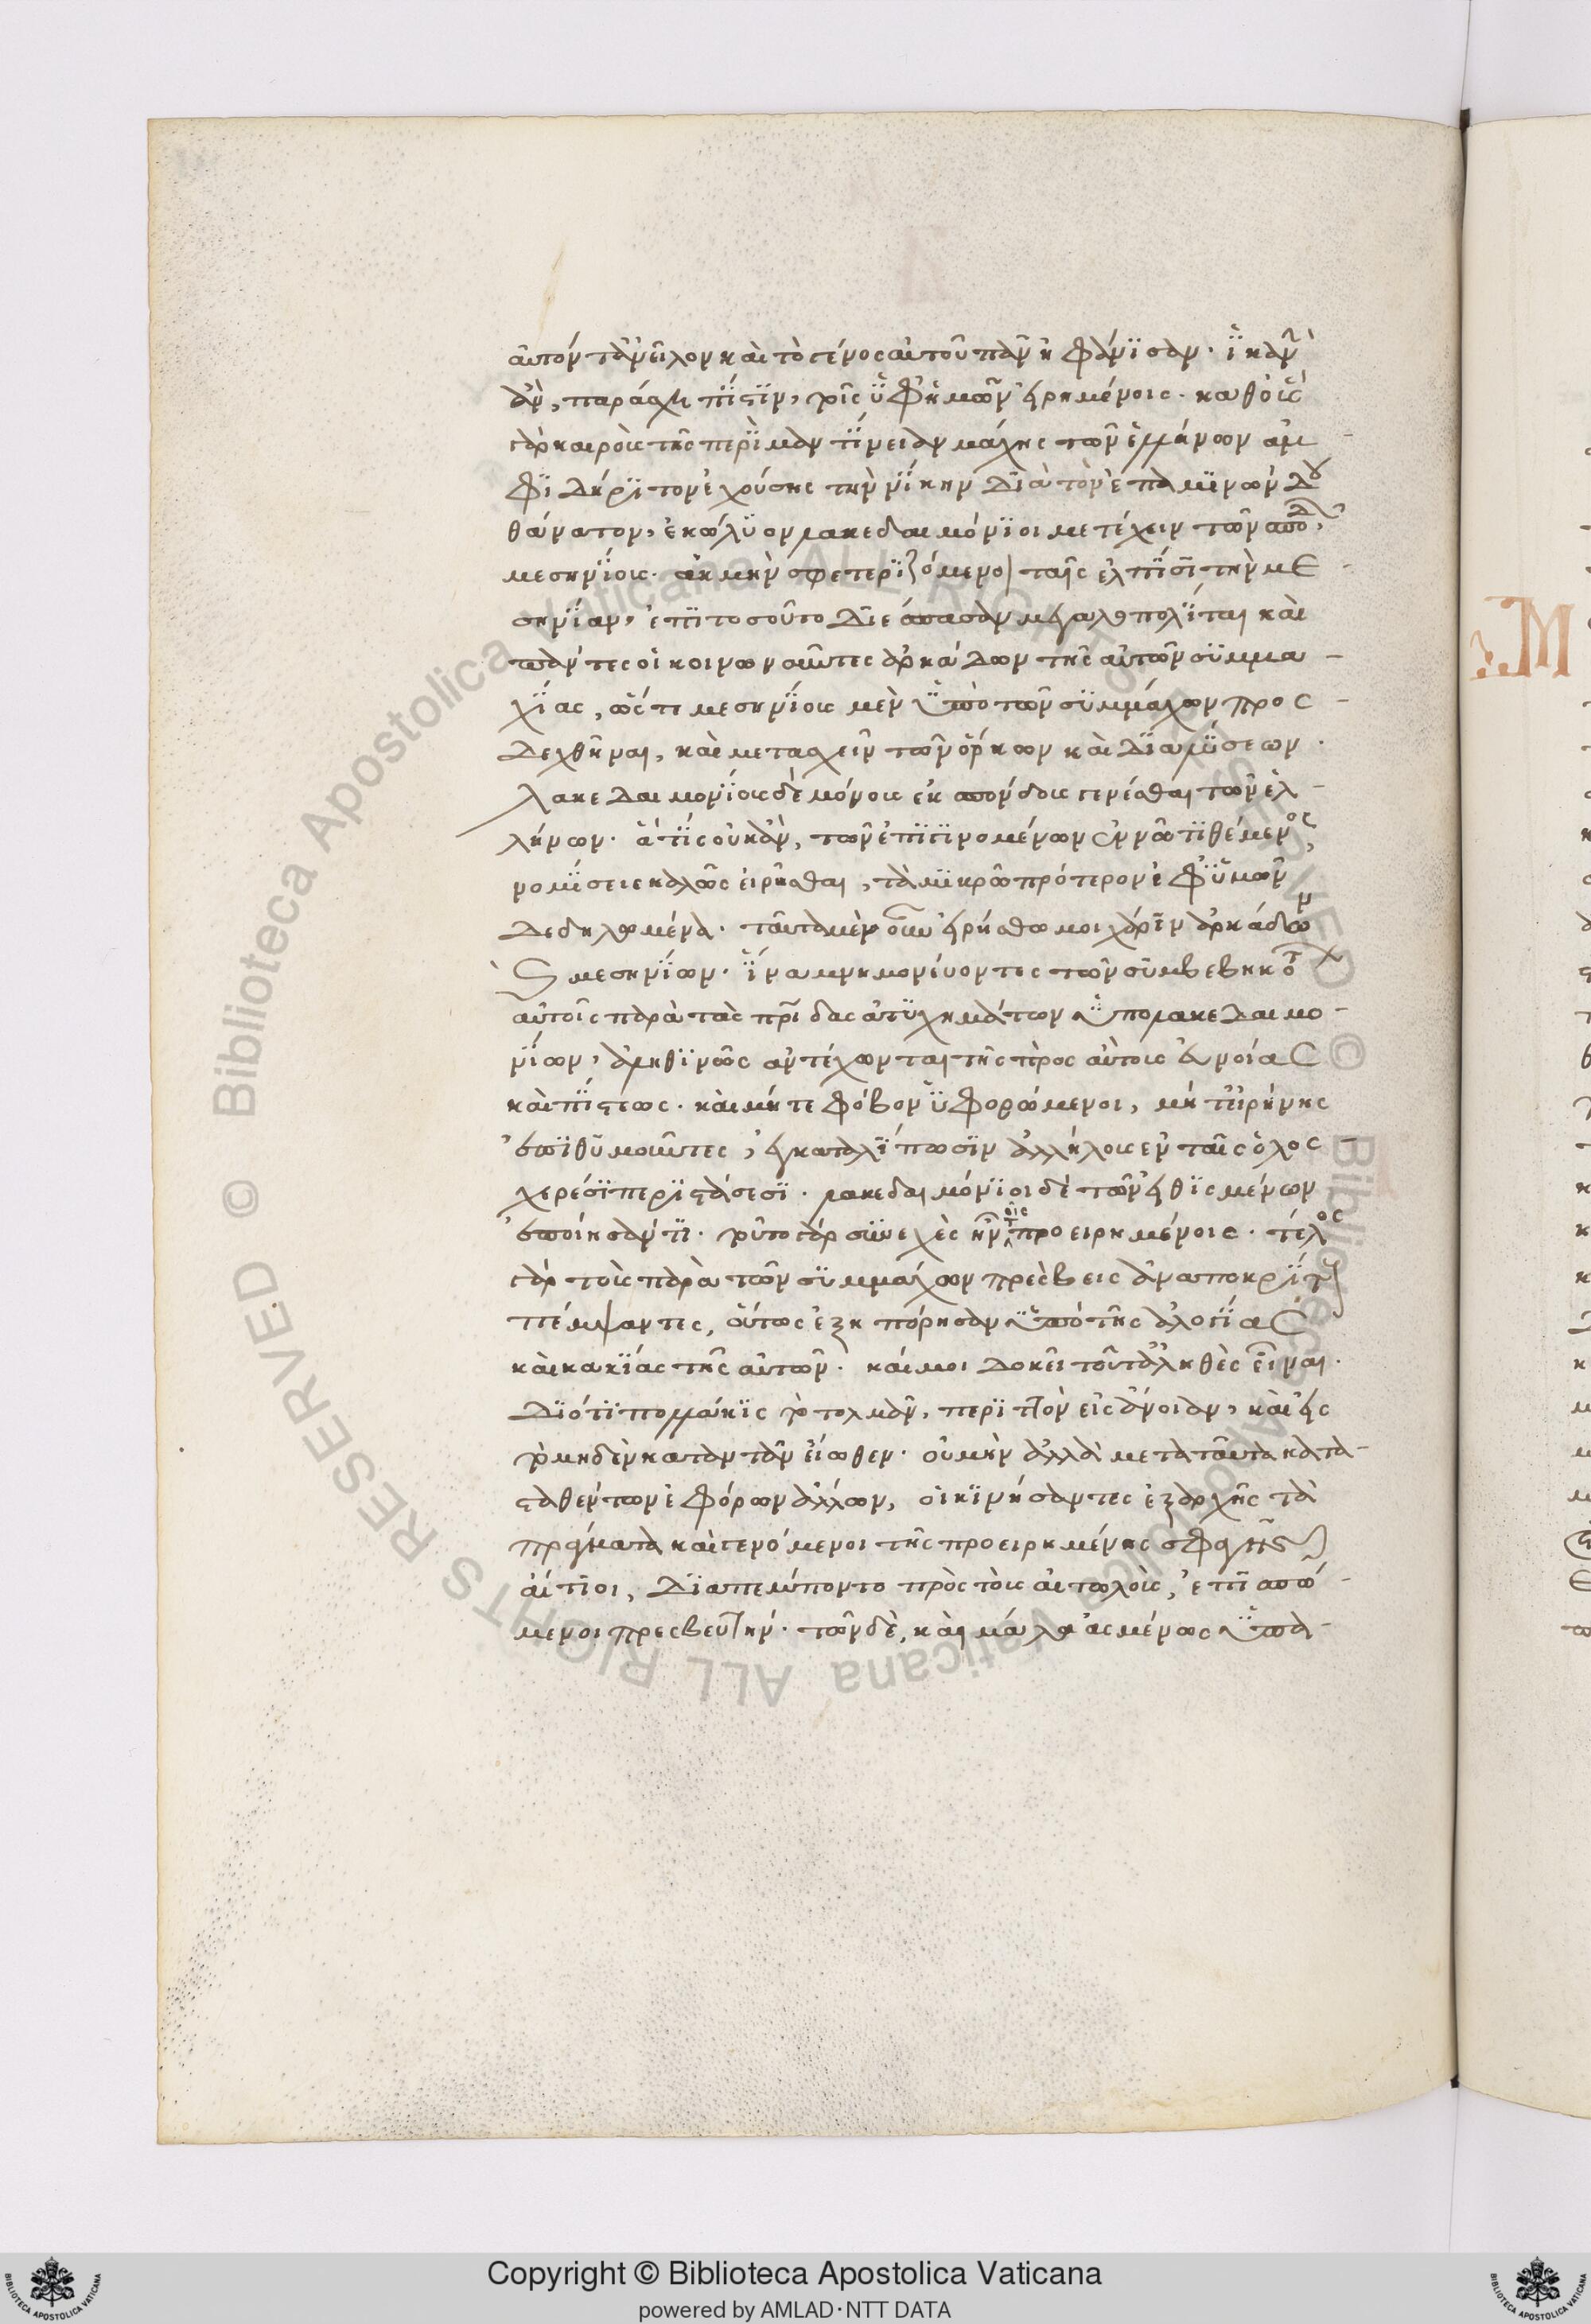 αὐτόν τ' ἀνεῖλον καὶ τὸ γένος αὐτοῦ πᾶν ἠφάνϊσαν· ἱκαν
ἂν, παράσχοι πίστιν, τοῖς ὑφ' ἡμῶν εἰρημένοις· καθ' οὓς
γὰρ καιροὺς τῆς περὶ μαντίνειαν μάχης τῶν ἑλλήνων ἀμ-
φϊδήρϊτον ἐχούσης τὴν νίκην διὰ τὸν ἐπαμινώνδου
θάνατον, ἐκώλϋον λακεδαιμόνϊοι μετέχειν τῶν σπονδ
μεσηνίοις· ἀκμὴν σφετερϊζόμενοι ταῖς ἐλπίσι τὴν με-
σηνίαν, ἐπὶ τοσοῦτο διέσπασαν μεγαλοπολῖται καὶ
πάντες οἱ κοινωνοῦντες ἀρκάδων τῆς αὐτῶν σϋμμα-
χίας, ὥστε μεσηνίους μὲν ὑπὸ τῶν συμμάχων προς-
δεχθῆναι, καὶ μετασχεῖν τῶν ὅρκων καὶ διαλύσεων·
λακεδαιμονίους δὲ μόνους ἐκσπόνδους γενέσθαι τῶν ἑλ-
λήνων· ἅ τίς οὐκ ἂν, τῶν ἐπιγινομένων ἐν νῶ τιθέμενος,
νομίσειε καλῶς εἰρῆσθαι, τὰ μικρῶ πρότερον ἐφ' ὑμῶν
δεδηλωμένα· ταῦτα μὲν οὖν εἰρήσθω μοι χάριν ἀρκάδων
καὶ μεσηνίων· ἵνα μνημονεύοντες τῶν συμβεβηκότ
αὐτοῖς παρὰ τὰς πρίδας ἀτυχημάτων ὑπο λακεδαιμο-
νίων, ἀληθϊνῶς ἀντέχωνται τῆς πρὸς αὐτοὺς εὐνοίας
καὶ πίστεως· καὶ μήτε φόβον ὑφορώμενοι, μήτ' εἰρήνης
ἐπιθυμοῦντες, ἐγκαταλίπωσιν ἀλλήλους ἐν ταῖς ὁλος-
χερέσι περιστάσεσι· λακεδαιμόνϊοι δὲ τῶν εἰθϊσμένων
ἐποίησάν τι· τοῦτο γὰρ συνεχὲς ἦν τοῖς προειρημένοις· τέλος
γὰρ τοὺς παρὰ τῶν συμμάχων πρέσβεις ἀναποκρίτους
πέμψαντες, οὕτως ἐξηπόρησαν ὑπὸ τῆς ἀλογίας
καὶ κακίας τῆς αὐτῶν· καί μοι δοκεῖ τοῦτ' ἀληθὲς εἶναι·
διότι πολλάκις τὸ τολμᾶν, περιττὸν εἰς ἄνοιαν, καὶ εἰς
τὸ μηδὲν καταντᾶν εἴωθεν· οὐ μὴν ἀλλὰ μετὰ ταῦτα κατα-
σταθέντων ἐφόρων ἄλλων, οἱ κϊνήσαντες ἐξ ἀρχῆς τὰ
πράγματα καὶ γενόμενοι τῆς προειρημένης σφαγῆς
αἴτιοι, διαπέμποντο πρὸς τοὺς αἰτωλοὺς, ἐπισπώ-
μενοι πρεσβευτήν· τῶν δὲ, καὶ μάλα ἀσμένως ὑπα-